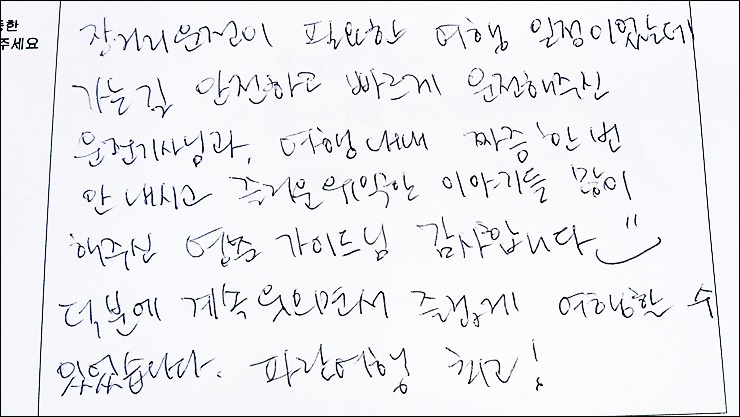 한
주세요
장거리운전이 필요한 여행 일정이었는데
가는길 안전하고 빠르게 운전해주신
운전기사님과, 여행 내내 짜증 한번
안 내시고 즐거운 이야기들 많이
해주신 가이드님 감사합니다
덕분에 계속 웃으면서 즐겁게 여행할 수
있었습니다. 파란여행 최고!